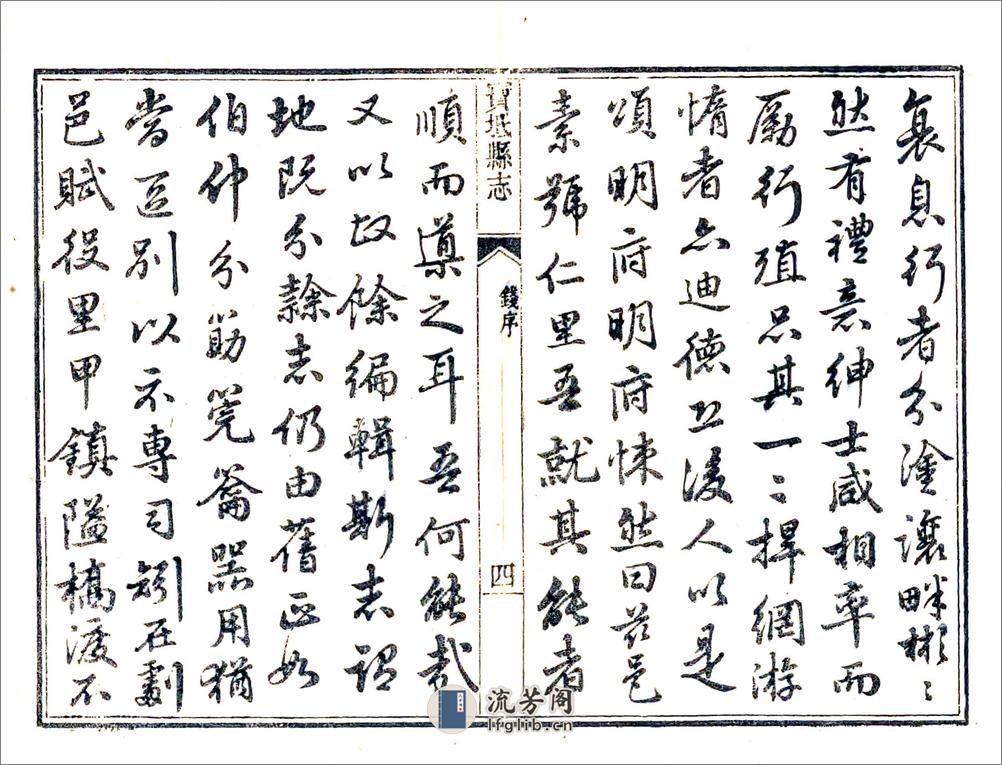 衰息行者分塗讓畔彬彬
然有禮意紳士咸相率而
勵行殖品其一二捍網游
惰者亦迪德恐後人以是
頌明府明府悚然曰茲邑
素號仁里吾就其能者
寶坻縣志
錢序
四
順而導之耳吾何能哉
又以政餘編輯斯志謂
地既分隸志仍由舊正如
伯仲分筯筦籥器用猶
當區別以示專司矧在劃
邑賦役里甲鎮隘橋渡不
流芳阁
lfglib.cn